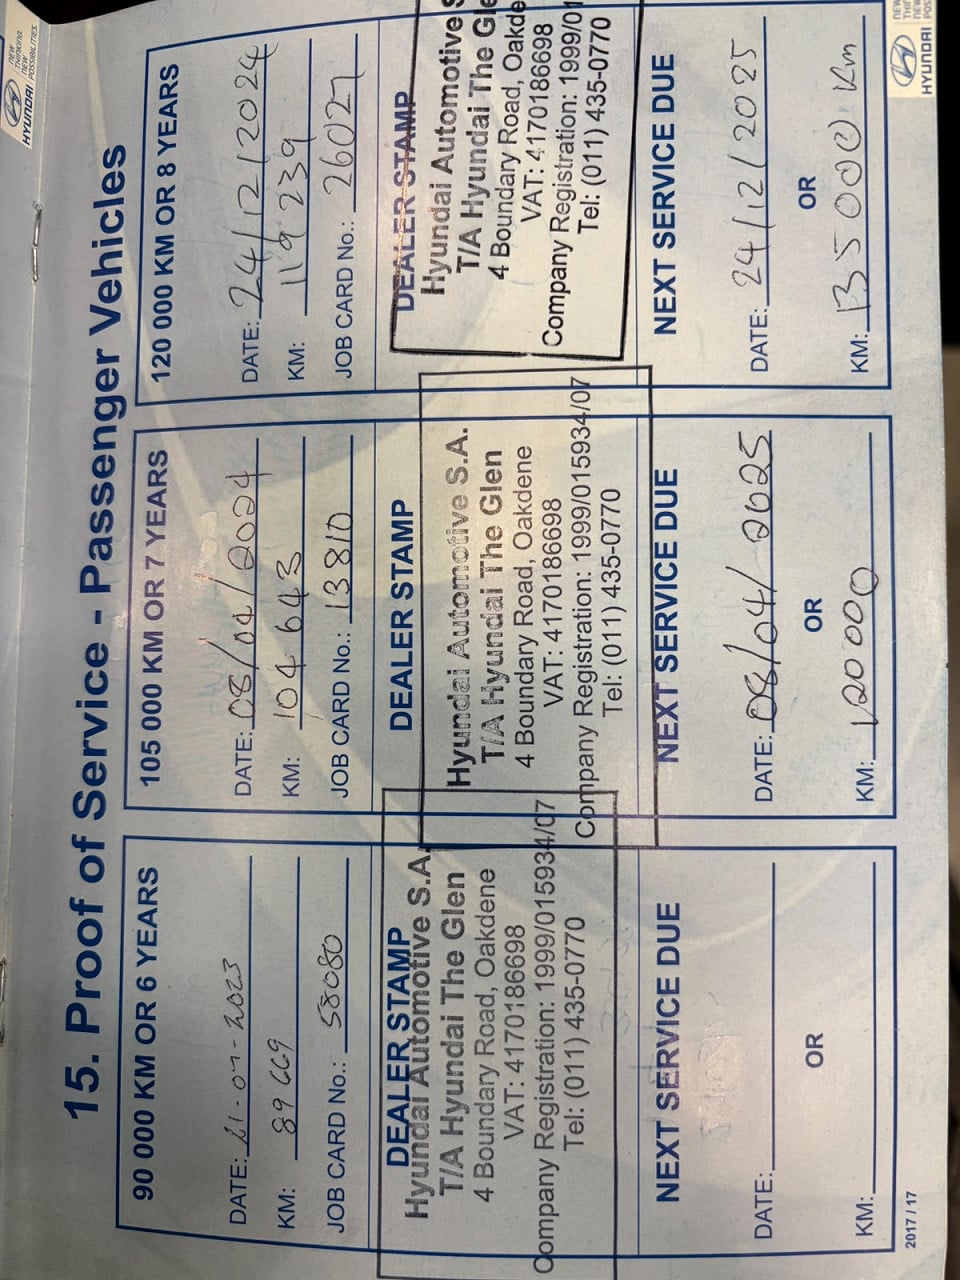 NEW
THINKING.
NEW
POSSIBILITIES.
HYUNDAI
15. Proof of Service - Passenger Vehicles
90 000 KM OR 6 YEARS
DATE: 21-07-2023
KM: 89 669
JOB CARD No.: 58080
DEALER STAMP
Hyundai Automotive S.A.
T/A Hyundai The Glen
4 Boundary Road, Oakdene
VAT: 4170186698
Company Registration: 1999/015934/07
Tel: (011) 435-0770
NEXT SERVICE DUE
DATE:
OR
KM:
105 000 KM OR 7 YEARS
DATE: 08/04/2024
KM: 104 643
JOB CARD No.: 13810
DEALER STAMP
Hyundai Automotive S.A.
T/A Hyundai The Glen
4 Boundary Road, Oakdene
VAT: 4170186698
Company Registration: 1999/015934/07
Tel: (011) 435-0770
NEXT SERVICE DUE
DATE: 08/04/2025
OR
KM: 120 000
120 000 KM OR 8 YEARS
DATE: 24/12/2024
KM: 119 239
JOB CARD No.: 26027
DEALER STAMP
Hyundai Automotive S
T/A Hyundai The Gle
4 Boundary Road, Oakde
VAT: 4170186698
Company Registration: 1999/01
Tel: (011) 435-0770
NEXT SERVICE DUE
DATE: 24/12/2025
OR
KM: 135 000 Km
2017 / 17
HYUNDAI